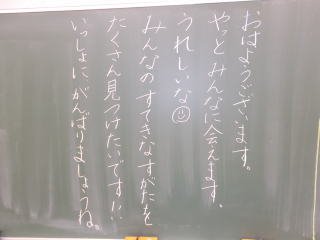 おはようございます。
やっとみんなに会えます。
うれしいな☺
みんなのすてきなすがたを
たくさん見つけたいです!!
いっしょに、がんばりましょうね。